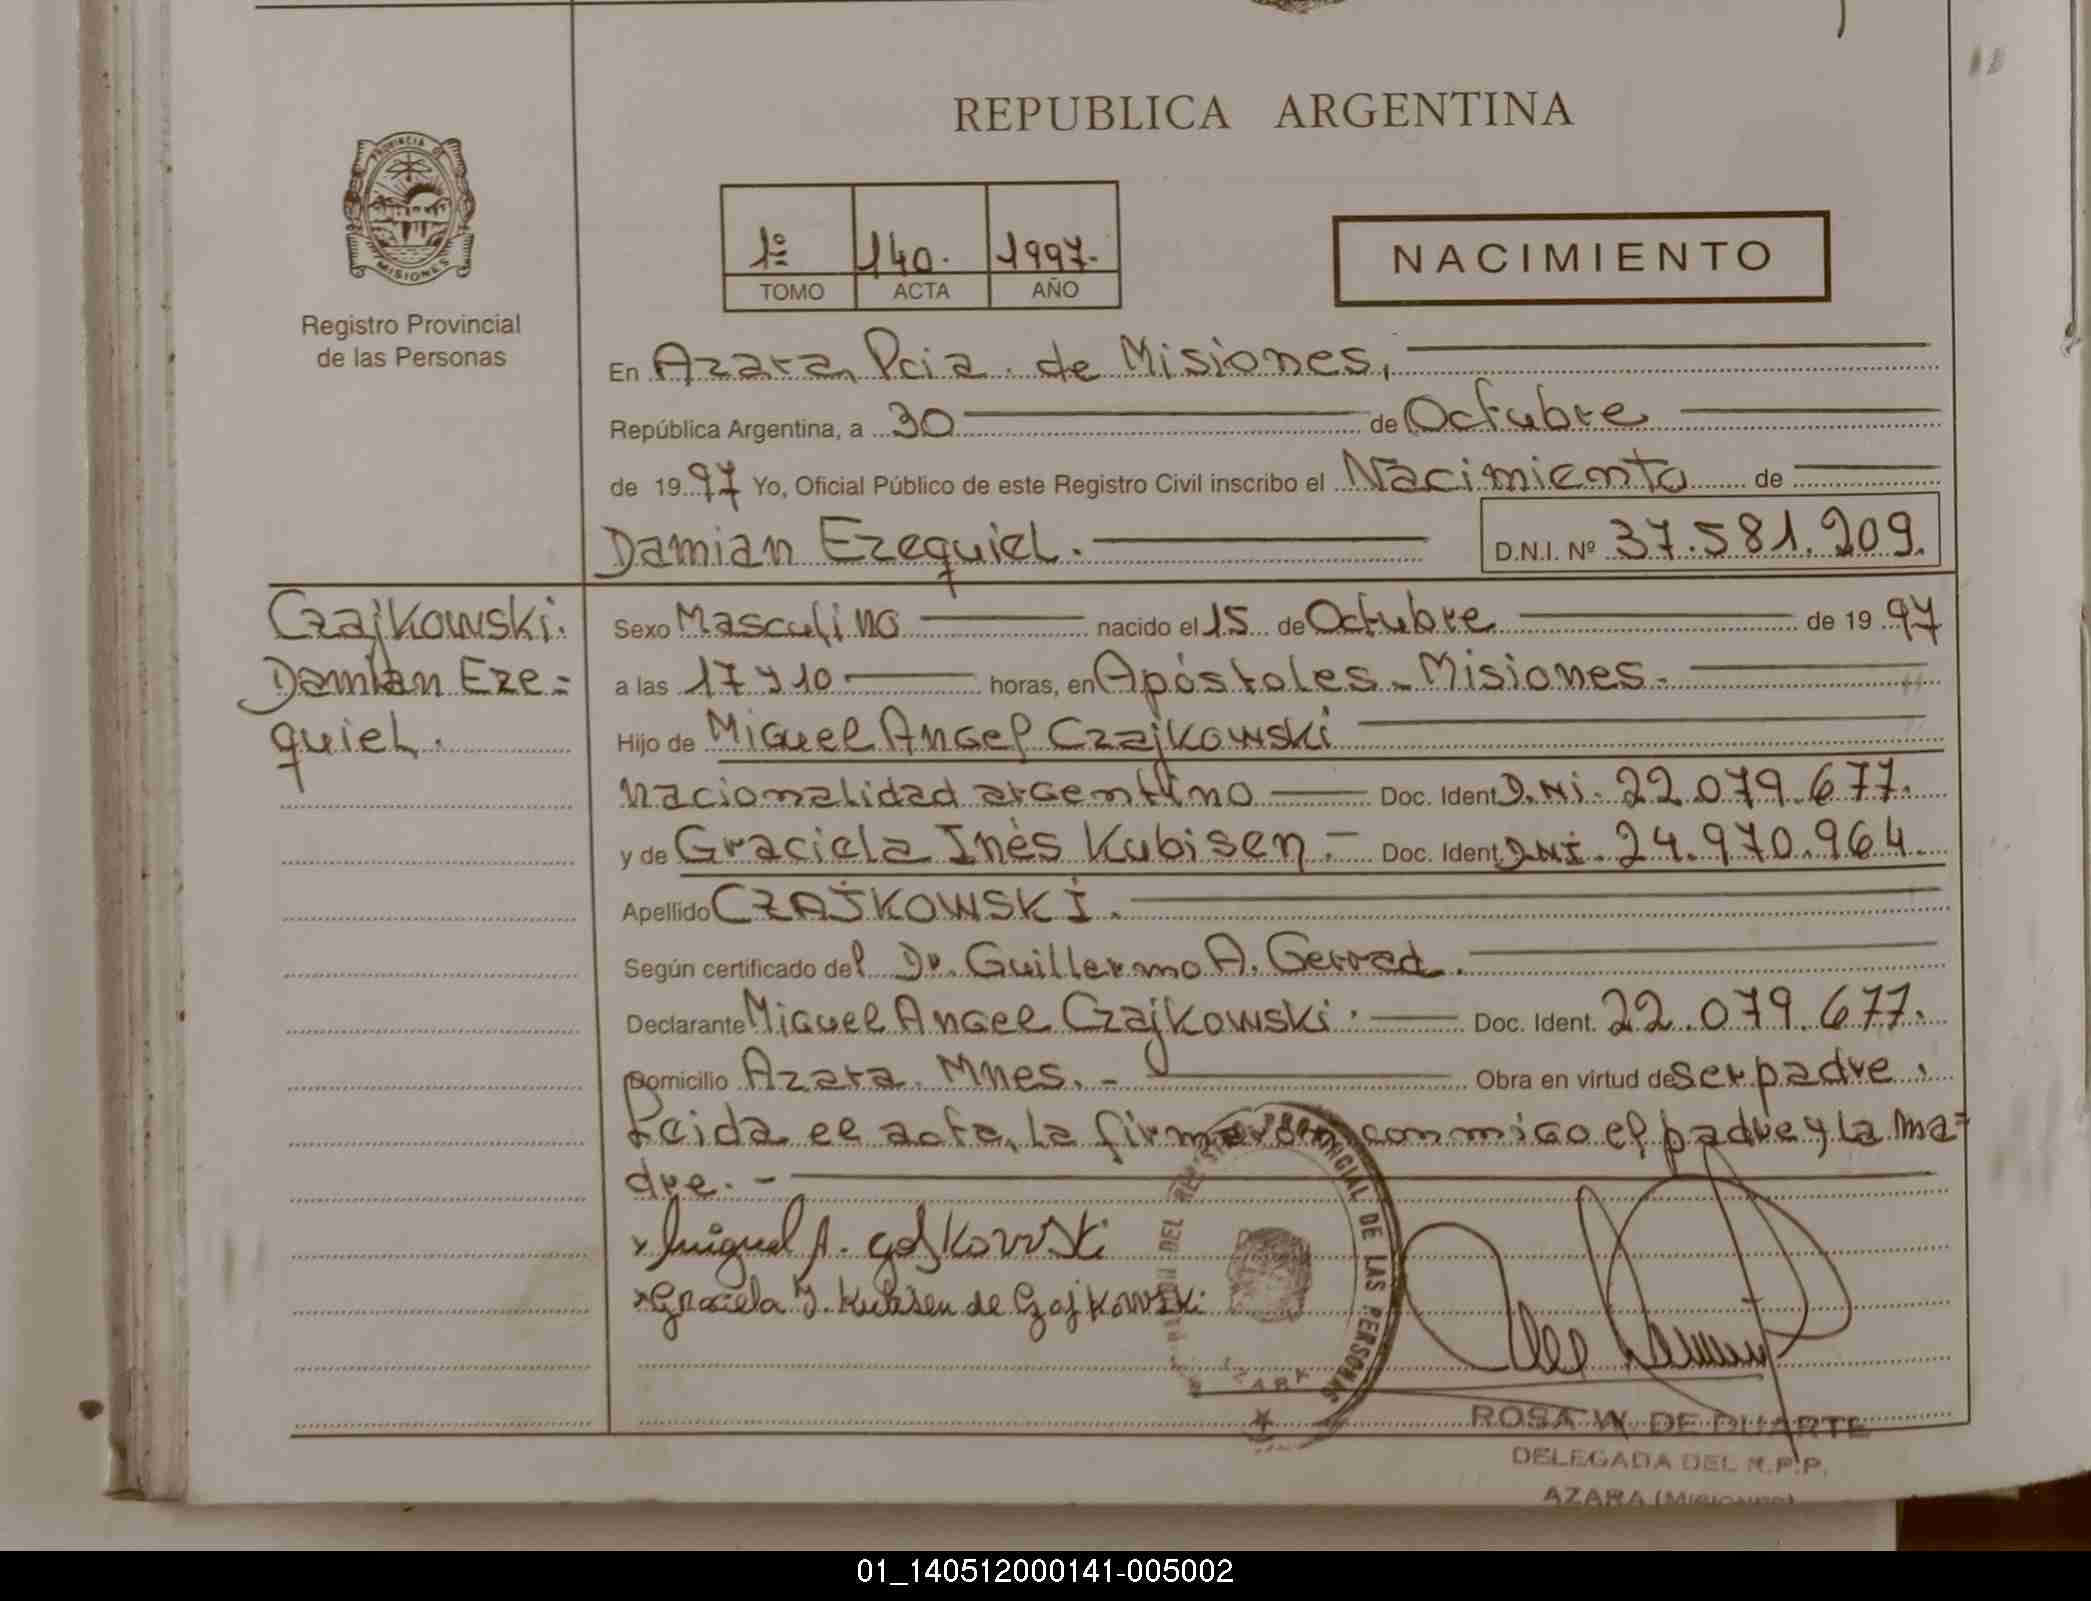 REPUBLICA ARGENTINA
PROVINCIA DE
MISIONES
Registro Provincial
de las Personas
1º 140. 1997.
TOMO ACTA AÑO
NACIMIENTO
En Azara, Pcia. de Misiones,
República Argentina, a 30 de Octubre
de 1997 Yo, Oficial Público de este Registro Civil inscribo el Nacimiento de
Damian Ezequiel. D.N.I. Nº 37.581.209.
Czajkowski.
Damian Eze=
quiel.
Sexo Masculino nacido el 15 de Octubre de 1997
a las 17 y 10 horas, en Apóstoles - Misiones.
Hijo de Miguel Angel Czajkowski
nacionalidad argentino Doc. Ident. D.Ni. 22.079.677.
y de Graciela Inés Kubisen.- Doc. Ident. DNI. 24.970.964
Apellido CZAJKOWSKI.
Según certificado del Dr. Guillermo A.
Declarante Miguel Angel Czajkowski. Doc. Ident. 22.079.677.
Domicilio Azara. Mnes. - Obra en virtud de ser padre.
Leida el acta, la firmaron conmigo el padre y la ma-
dre. -
Miguel A.
Graciela I. Kubisen de Czajkowski
DEL REGISTRO PROVINCIAL DE LAS PERSONAS
AZARA
ROSA W. DE DUARTE
DELEGADA DEL R.P.P.
AZARA (Misiones)
01_140512000141-005002